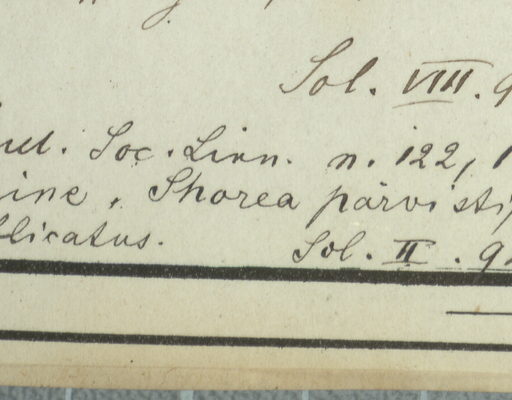 Sol. VIII. 9
Soc. Linn. n. 122, 1
Shorea parvisti
plicatus. Sol. II. 92